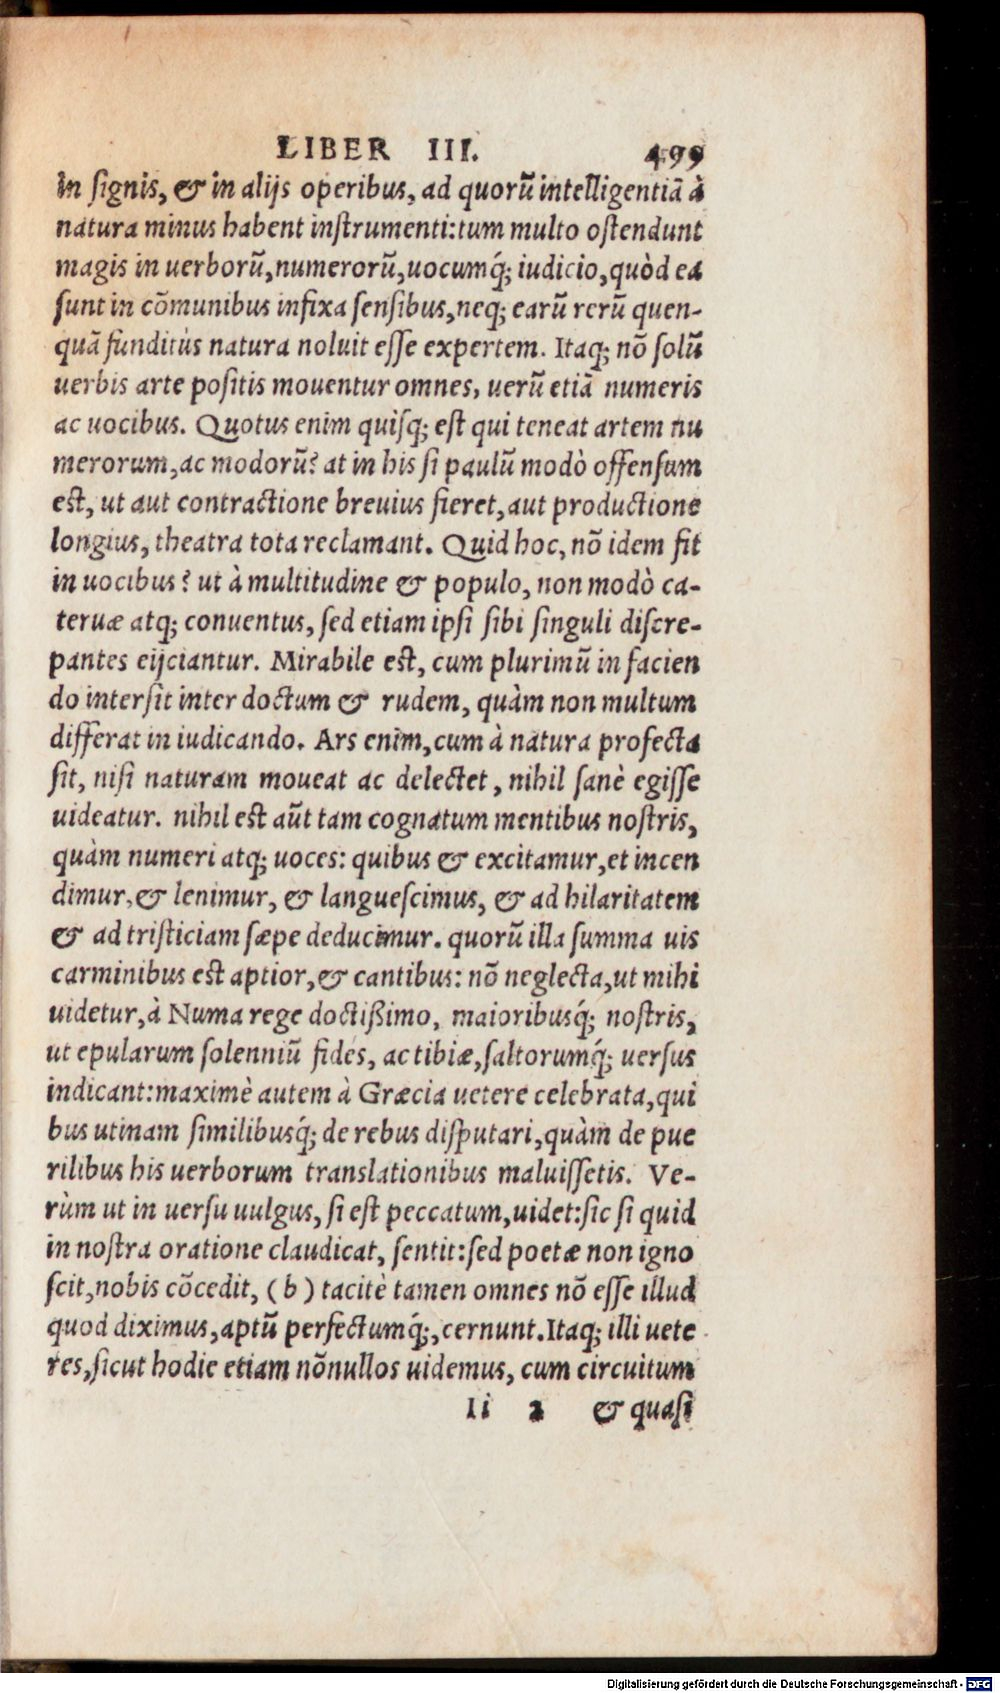 LIBER III. 499
in ſignis, & in alijs operibus, ad quorũ intelligentiã à
natura minus habent inſtrumenti:tum multo oſtendunt
magis in uerborũ,numerorũ,uocumq́; iudicio,quòd ea
ſunt in cõmunibus infixa ſenſibus,neq; earũ rerũ quen-
quã funditùs natura noluit eſſe expertem. Itaq; nõ ſolũ
uerbis arte poſitis mouentur omnes, uerũ etiã numeris
ac uocibus. Quotus enim quiſq; eſt qui teneat artem nu
merorum,ac modorũ? at in his ſi paulũ modò offenſum
eſt, ut aut contractione breuius fieret,aut productione
longius, theatra tota reclamant. Quid hoc, nõ idem fit
in uocibus? ut à multitudine & populo, non modò ca-
teruæ atq; conuentus, ſed etiam ipſi ſibi ſinguli diſcre-
pantes eijciantur. Mirabile eſt, cum plurimũ in facien
do interſit inter doctum & rudem, quàm non multum
differat in iudicando. Ars enim,cum à natura profecta
ſit, niſi naturam moueat ac delectet, nihil ſanè egiſſe
uideatur. nihil eſt aũt tam cognatum mentibus noſtris,
quàm numeri atq; uoces: quibus & excitamur,et incen
dimur,& lenimur, & langueſcimus, & ad hilaritatem
& ad triſticiam ſæpe deducimur. quorũ illa ſumma uis
carminibus eſt aptior,& cantibus: nõ neglecta,ut mihi
uidetur,à Numa rege doctißimo, maioribusq́; noſtris,
ut epularum ſolenniũ fides, ac tibiæ,ſaltorumq́; uerſus
indicant:maximè autem à Græcia uetere celebrata,qui
bus utinam ſimilibusq́; de rebus diſputari,quàm de pue
rilibus his uerborum translationibus maluiſſetis. Ve-
rùm ut in uerſu uulgus, ſi eſt peccatum,uidet:ſic ſi quid
in noſtra oratione claudicat, ſentit:ſed poetæ non igno
ſcit,nobis cõcedit, (b) tacitè tamen omnes nõ eſſe illud
quod diximus,aptũ perfectumq́;,cernunt.Itaq; illi uete
res,ſicut hodie etiam nõnullos uidemus, cum circuitum
Ii 2 & quaſi
Digitalisierung gefördert durch die Deutsche Forschungsgemeinschaft - DFG